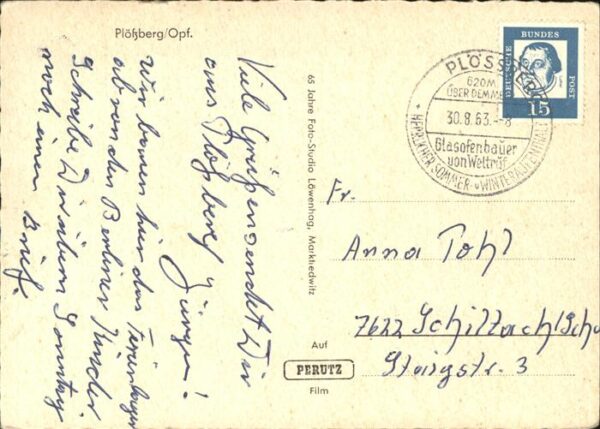 Plößberg/Opf.
Viele Grüße sendet Dir
aus Plößberg Jürgen!
Wir bauen hier das
ab von den Berliner Kinder
Schreibe Dir am Sonntag
noch einen Brief.
65 Jahre Foto-Studio Löwenhag, Marktredwitz
Auf
PERUTZ
Film
PLÖSSBERG
620M
ÜBER DEM MEER
30.8.63.-8
Glasofenbauer
von Weltruf
HERRLICHER SOMMER
DEUTSCHE BUNDES POST
15
Fr.
Anna Tohl
7622 Schiltach/Schw
Staigstr. 3